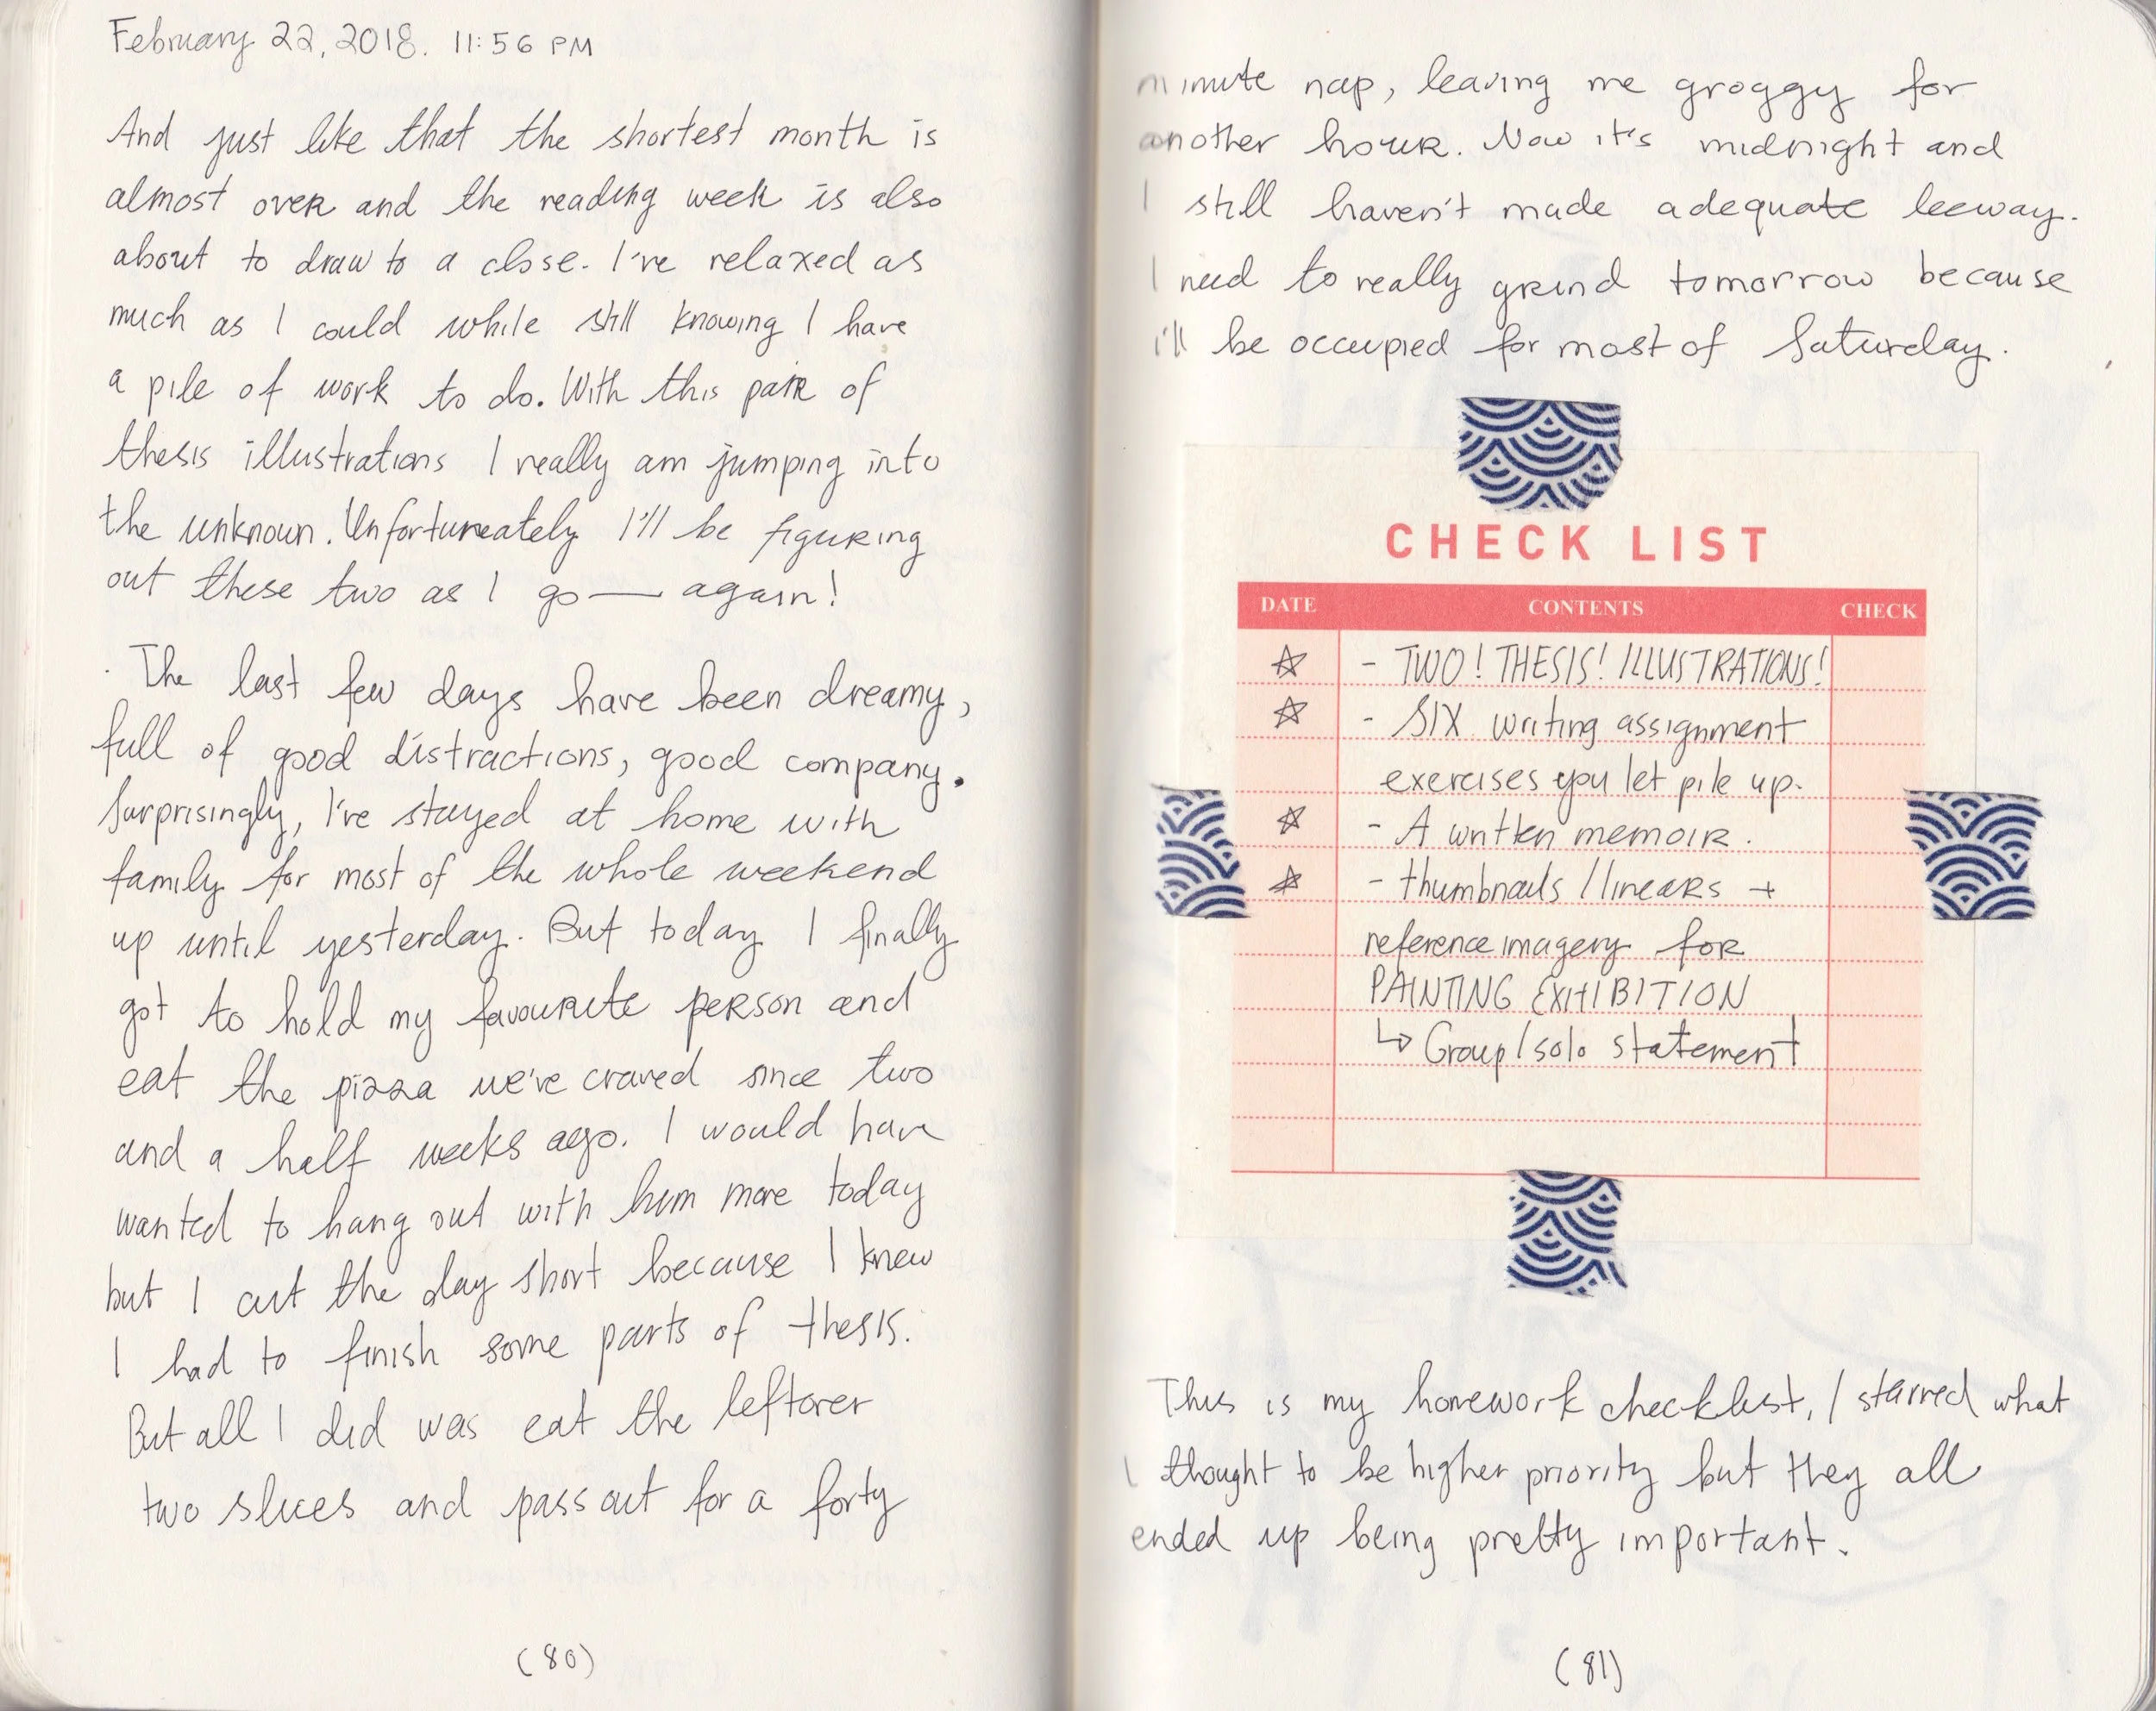 February 22, 2018. 11:56 PM
And just like that the shortest month is
almost over and the reading week is also
about to draw to a close. I've relaxed as
much as I could while still knowing I have
a pile of work to do. With this pair of
thesis illustrations I really am jumping into
the unknown. Unfortuneately I'll be figuring
out these two as I go — again!
The last few days have been dreamy,
full of good distractions, good company.
Surprisingly, I've stayed at home with
family for most of the whole weekend
up until yesterday. But today I finally
got to hold my favourite person and
eat the pizza we've craved since two
and a half weeks ago. I would have
wanted to hang out with him more today
but I cut the day short because I knew
I had to finish some parts of thesis.
But all I did was eat the leftover
two slices and pass out for a forty
(80)
minute nap, leaving me groggy for
another hour. Now it's midnight and
I still haven't made adequate leeway.
I need to really grind tomorrow because
i'll be occupied for most of Saturday.
CHECK LIST
DATE CONTENTS CHECK
☆ - TWO! THESIS! ILLUSTRATIONS!
☆ - SIX writing assignment
exercises you let pile up.
☆ - A written memoir.
☆ - thumbnails / linears +
reference imagery for
PAINTING EXHIBITION
↳ Group/solo statement
This is my homework checklist, I starred what
I thought to be higher priority but they all
ended up being pretty important.
(81)